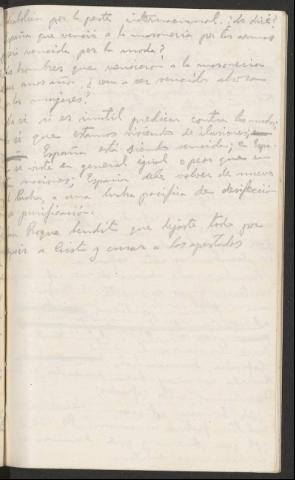 por la peste internacional. ¿Lo diré?
que venció a la masonería por las armas
vencida por la moda?
hombres que vencieron a la masonería
unos años, ¿van a ser vencidos ahora
las mujeres?
sé si es inútil predicar contra las modas;
sé que estamos viviendo de ilusiones;
España está siendo vencida; en
se viste en general igual o peor que en
naciones; España debe volver de nuevo
lucha, a una lucha pacífica de desinfección
purificación.
Roque bendito que dejaste todo por
a Cristo y curar a los apestados